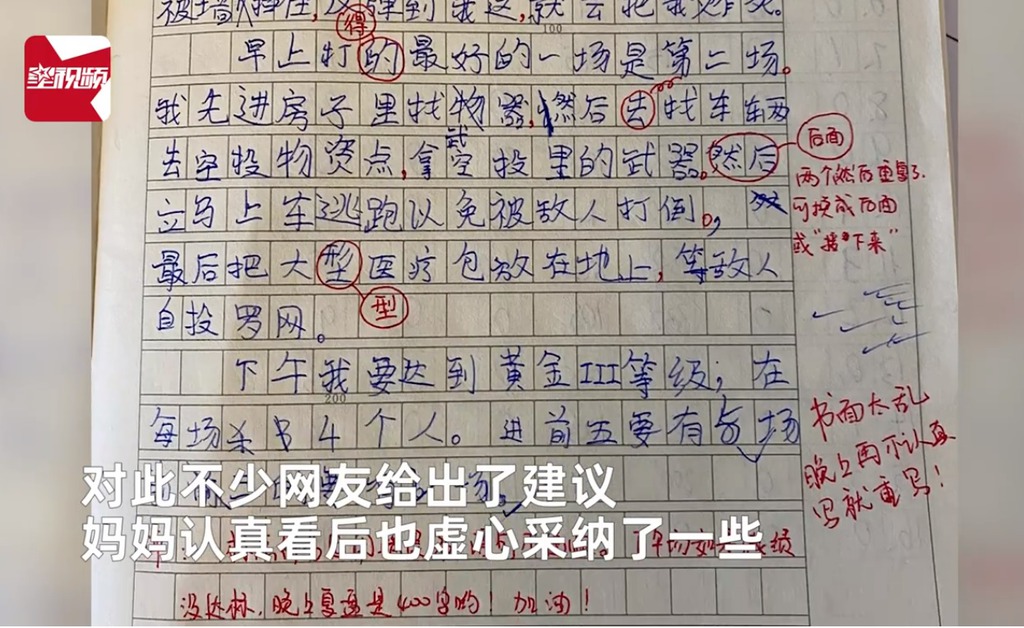 星视频
得
100
早上打的最好的一场是第二场。
我先进房子里找物器,然后去找车车辆
去空投物资点,拿空投里的武器。然后
武
后面
两个然后重复了.
可换成后面
或"接下来"
立马上车逃跑以免被敌人打倒。,
最后把大型医疗包放在地上,等敌人
型
自投罗网。
下午我要达到黄金III等级;在
200
每场杀 4个人。进前五要有5场
书面太乱
晚上再不认真
写就重写!
对此不少网友给出了建议
妈妈认真看后也虚心采纳了一些
没达标,晚上复盘是400字的!加油!